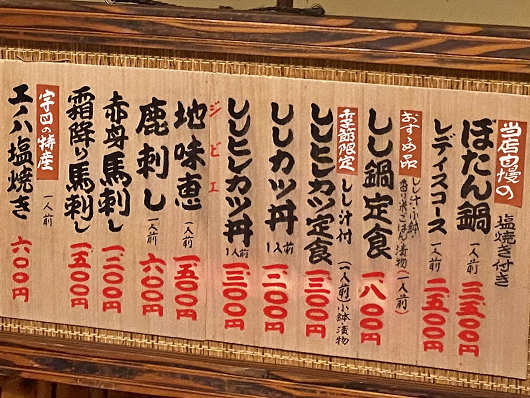 当店自慢の
ぼたん鍋
塩焼き付き
一人前
三、五〇〇円
レディスコース
一人前
二、五〇〇円
おすすめ品
しし鍋定食
しし汁・小鉢
ごはん・漬物
(一人前)
一、八〇〇円
季節限定
ししヒレカツ定食
しし汁付
(一人前)小鉢漬物
一、三〇〇円
ししカツ丼
1人前
一、二〇〇円
ししヒレカツ丼
1人前
一、三〇〇円
ジビエ
地味恵
一人前
一、五〇〇円
鹿刺し
一人前
六〇〇円
赤身馬刺し
一、二〇〇円
霜降り馬刺し
一、五〇〇円
宇目の特産
エノハ塩焼き
一人前
六〇〇円